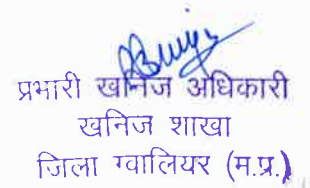 प्रभारी खनिज अधिकारी
खनिज शाखा
जिला ग्वालियर (म.प्र.)